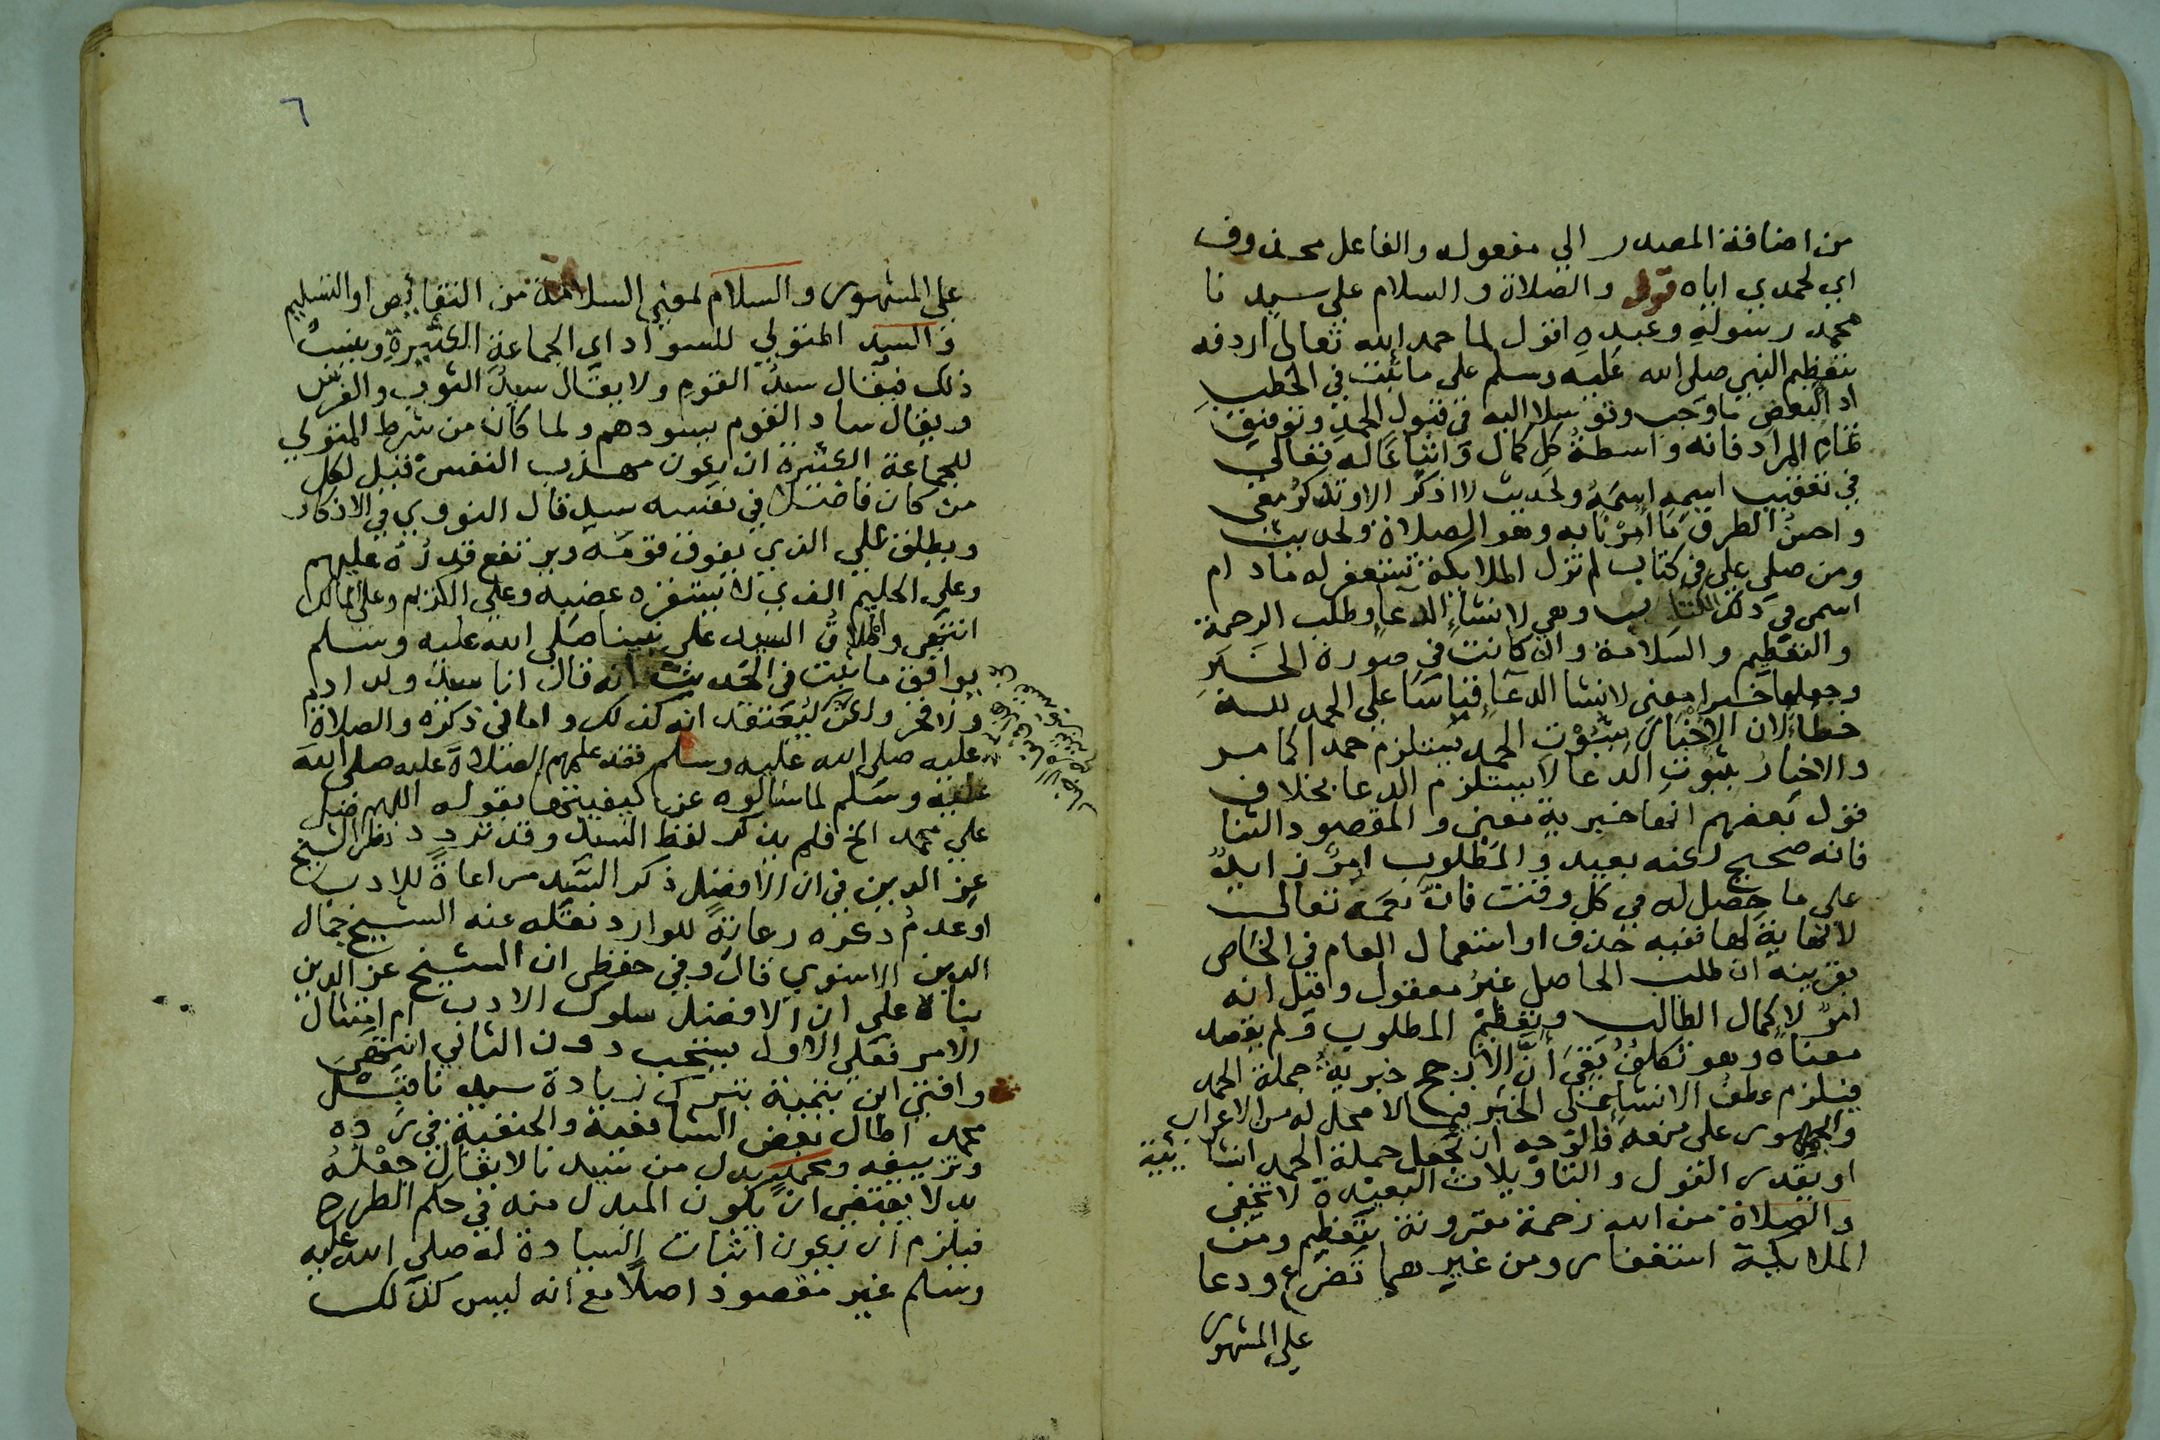 من اضافة المصدر الي مفعوله والفاعل محذوف
اي لحمدي اياه قوله والصلاة والسلام علي سيد نا
محمد رسوله وعبده اقول لما حمد الله تعالى اردفه
بتعظيم النبي صلى الله عليه وسلم على ما ثبت في الخطب
اد البعض ما وجب وتوسلا اليه في قبول الحمد وتوفيق
تمام المراد فانه واسطة كل كمال واتباعا له تعالي
في تعقيب اسمه اسمه ولحديث لا اذكر الا وتذكر معي
واحسن الطرق ما امرنا به وهو الصلاة ولحديث
ومن صلي علي في كتاب لم تزل الملايكة تستغفر له مادام
اسمي في ذلك الكتاب وهي لانشاء الدعا وطلب الرحمة
والتعظيم والسلامة وان كانت في صورة الخبر
وجعلها خبرا معني لانشا الدعاء قياسا علي الحمد لله
خطاء لان الاخبار بثبوت الحمد يستلزم حمدا كما مر
والاخبار بثبوت الدعا لا يستلزم الدعا بخلاف
قول بعضهم انها خبرية معني والمقصود الثنا
فانه صحيح لكنه بعيد والمطلوب امر زايد
علي ما حصل له في كل وقت فان نعمه تعالي
لا نهاية لها ففيه حذف او استعمال العام في الخاص
بقرينة ان طلب الحاصل غير معقول وقيل انه
امر لا كمال الطالب وتعظيم المطلوب ولم يقصد
معناه وهو تكلف بقي ان الارجح خبرية جملة الحمد
فيلزم عطف الانشا علي الخبر فيما لا محل له من الاعراب
والجمهور على منعه فالوجه ان تجعل جملة الحمد انشائية
او يقدر القول والتاويلات البعيدة لا تخفي
والصلاة من الله رحمة مقرونة بتعظيم ومن
الملايكة استغفار ومن غيرهما تضرع ودعا
علي المشهور
٦
علي المشهور والسلام لمعني السلامة من النقايص او التسليم
والسيد المتولي للسواد اي الجماعة الكثيرة وينسب
ذلك فيقال سيد القوم ولا يقال سيد الثوب والفرس
ويقال ساد القوم يسودهم ولما كان من شرط المتولي
للجماعة الكثيرة ان يكون مهذب النفس قيل لكل
من كان فاضلا في نفسه سيد قال النووي في الاذكار
ويطلق علي الذي يفوق قومه ويرتفع قدره عليهم
وعلي الحليم الذي لا يستفزه غضبه وعلي الكريم وعلي المالك
انتهي واطلاق السيد علي نبينا صلى الله عليه وسلم
يوافق ما ثبت في الحديث انه قال انا سيد ولد ادم
ولا فخر ولكن ليعتقد انه كذلك واما في ذكره والصلاة
عليه صلى الله عليه وسلم فقد علمهم الصلاة عليه صلى الله
عليه وسلم لما سألوه عن كيفيتها بقوله اللهم صل
علي محمد الخ فلم يذكر لفظ السيد وقد تردد نظر الشيخ
عز الدين في ان الافضل ذكر السيد مراعاة للادب
او عدم ذكره رعاية للوارد نقله عنه الشيخ جمال
الدين الاسنوي قال وفي حفظي ان الشيخ عز الدين
بناه علي ان الافضل سلوك الادب ام امتثال
الامر فعلي الاول يستحب دون الثاني انتهي
وافتي ابن تيمية بترك زيادة سيدنا قبل
محمد اطال بعض الشافعية والحنفية في رده
وتزييفه ومحمد بدل من سيد نا لا يقال جعله
بدلا يقتضي ان يكون المبدل منه في حكم الطرح
فيلزم ان يكون اثبات السيادة له صلى الله عليه
وسلم غير مقصود اصلا مع انه ليس كذلك